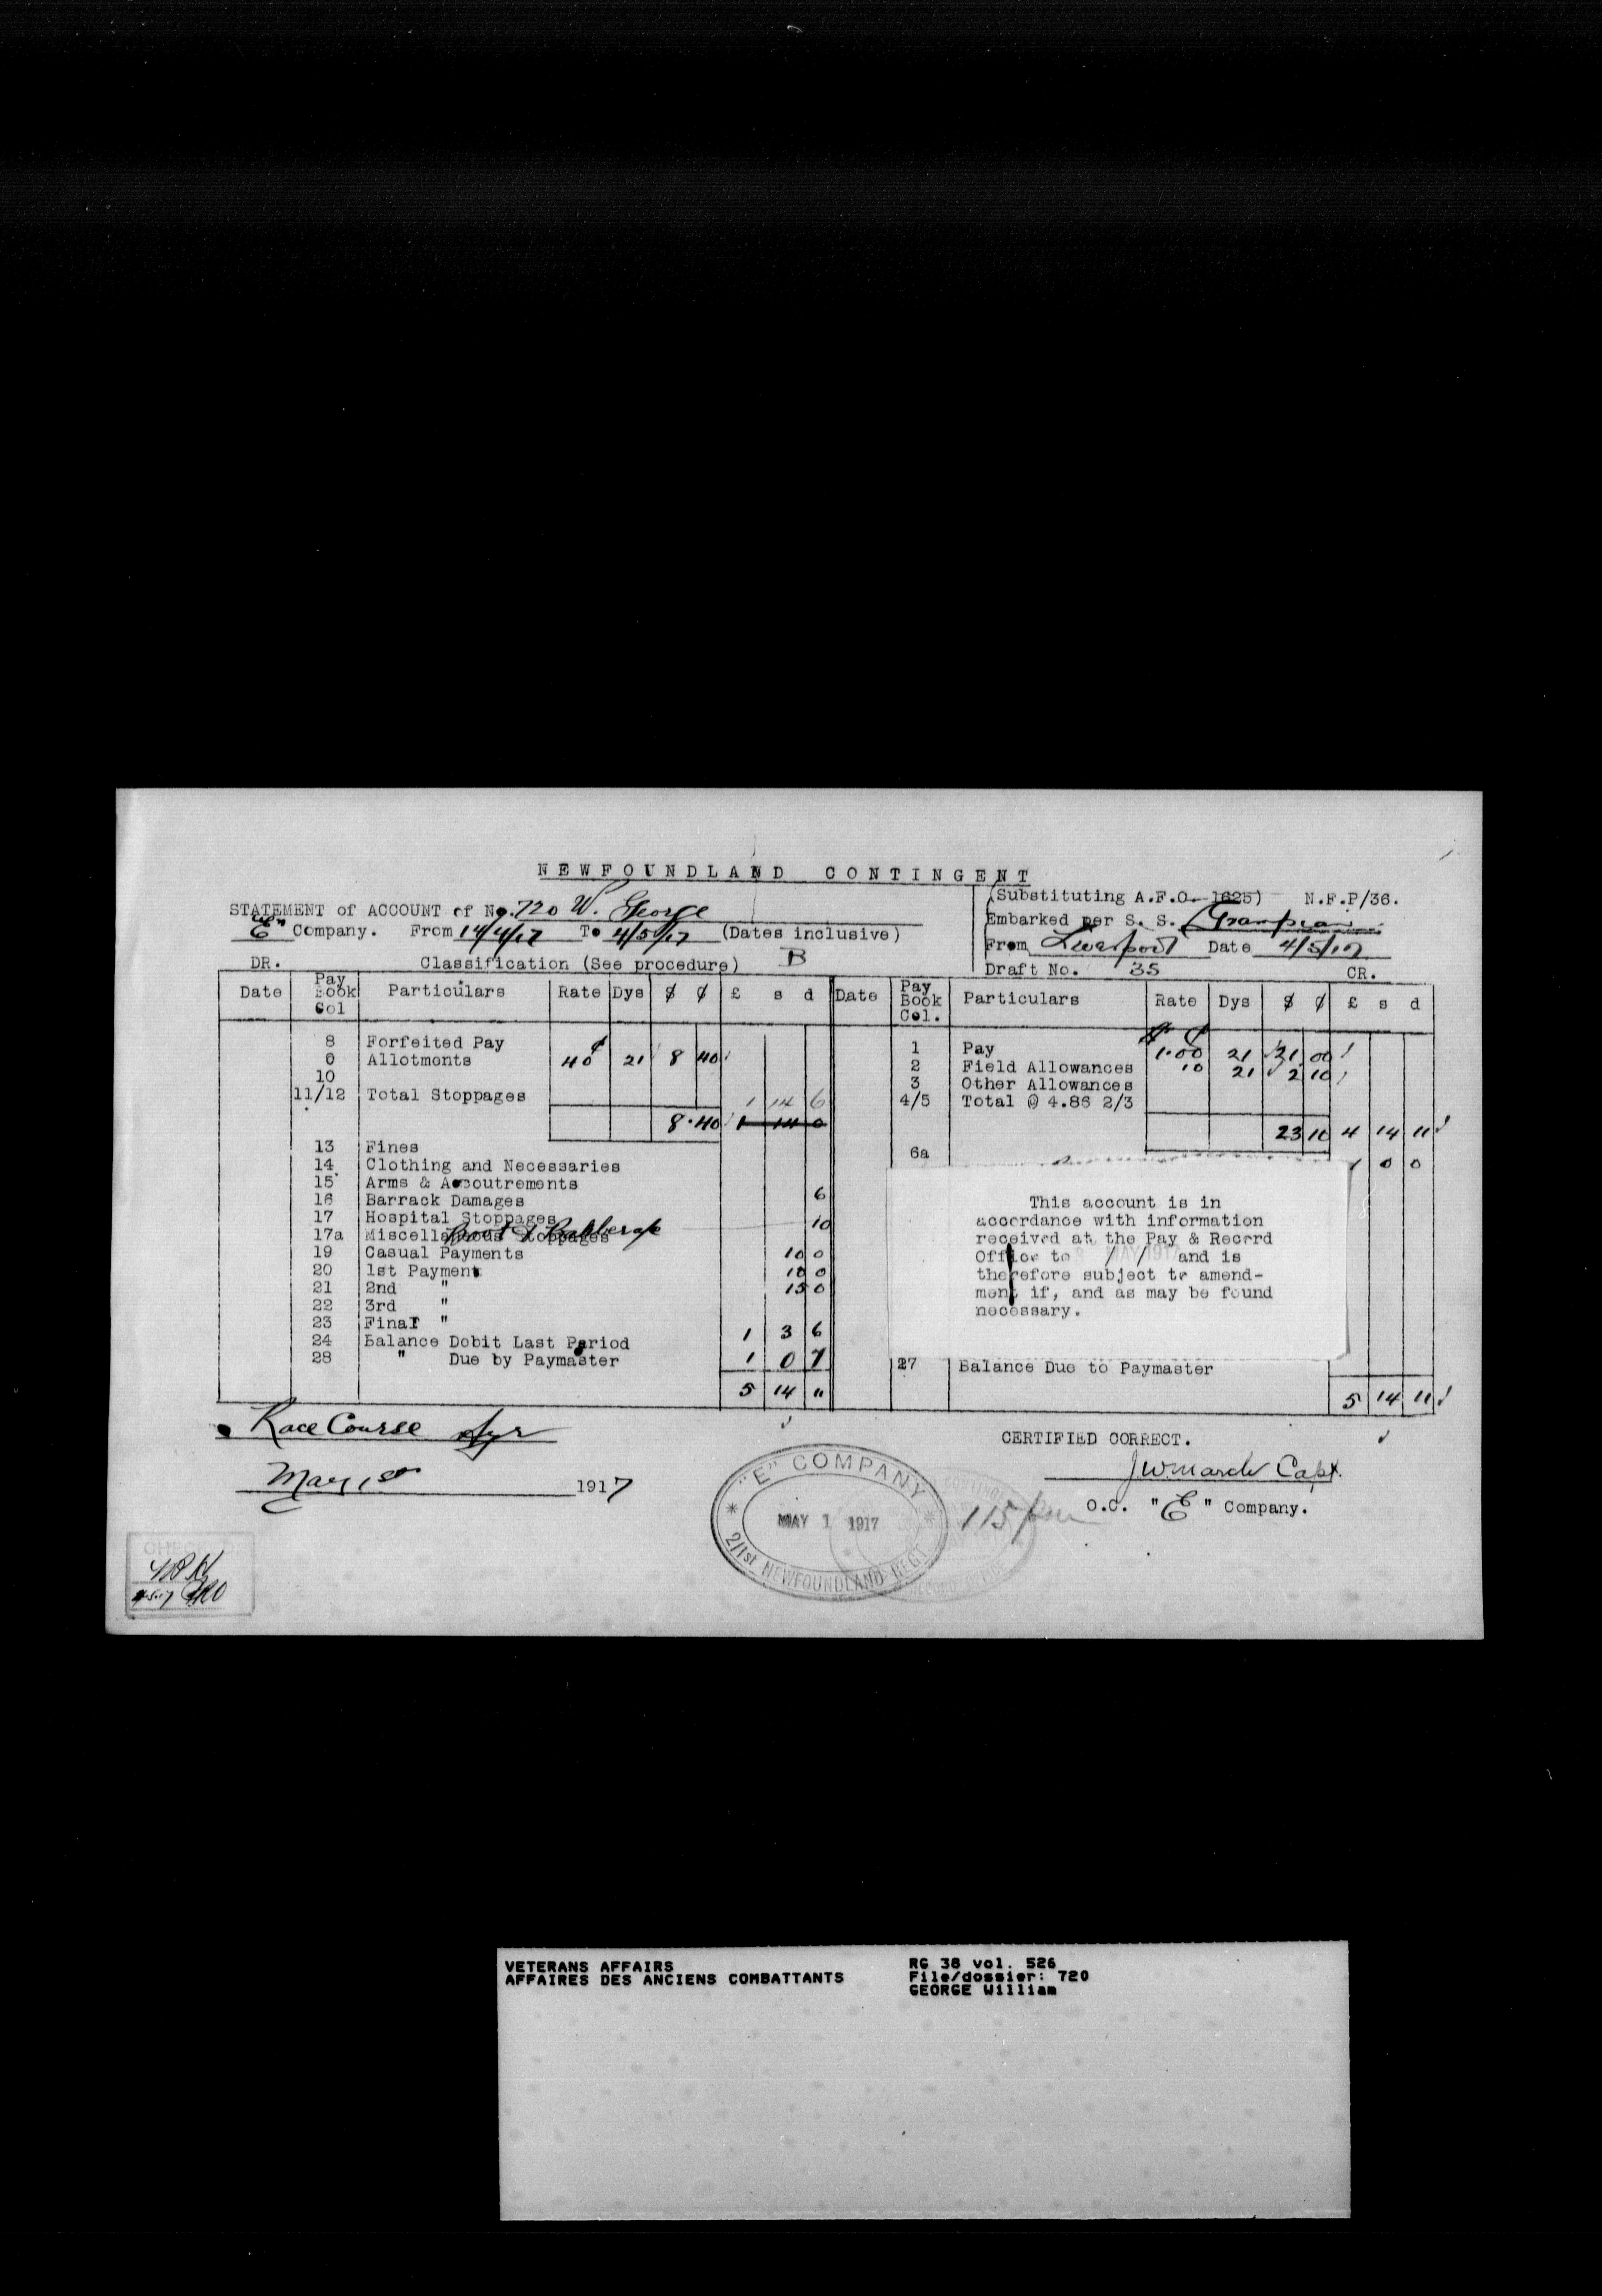 NEWFOUNDLAND CONTINGENT
(Substituting A.F.O. 1625) N.F.P/36.
STATEMENT of ACCOUNT of No. 720 W. George
Embarked per S. S. Grampian
"E" Company. From 14/4/17 To 4/5/17 (Dates inclusive)
From Liverpool Date 4/5/17
DR. Classification (See procedure) B
Draft No. 35 CR.
Date Pay Book Col Particulars Rate Dys $ ¢ £ s d Date Pay Book Col. Particulars Rate Dys $ ¢ £ s d
8 Forfeited Pay
0 Allotments 40¢ 21 8 40
10
11/12 Total Stoppages 1 14 6
8.40 1 14 0
13 Fines
14 Clothing and Necessaries
15 Arms & Accoutrements
16 Barrack Damages 6
17 Hospital Stoppages 10
17a Miscellaneous Stoppages Boot
19 Casual Payments 10 0
20 1st Payment 10 0
21 2nd " 15 0
22 3rd "
23 Final "
24 Balance Debit Last Period 1 3 6
28 " Due by Paymaster 1 0 7
5 14 11
$ ¢
1 Pay 1.00 21 21 00
2 Field Allowances 10 21 2 10
3 Other Allowances
4/5 Total @ 4.86 2/3
23 10 4 14 11
6a
1 0 0
This account is in
accordance with information
received at the Pay & Record
Office to / / and is
MAY 1917
therefore subject to amend-
ment if, and as may be found
necessary.
27 Balance Due to Paymaster
5 14 11
Race Course Ayr
May 1st 1917
CERTIFIED CORRECT.
J W March Capt.
O.C. "E" Company.
"E" COMPANY
MAY 1 1917
2/1st NEWFOUNDLAND REGT.
RECORD OFFICE
115
CHECKED
VETERANS AFFAIRS
AFFAIRES DES ANCIENS COMBATTANTS
RG 38 vol. 526
File/dossier: 720
GEORGE William